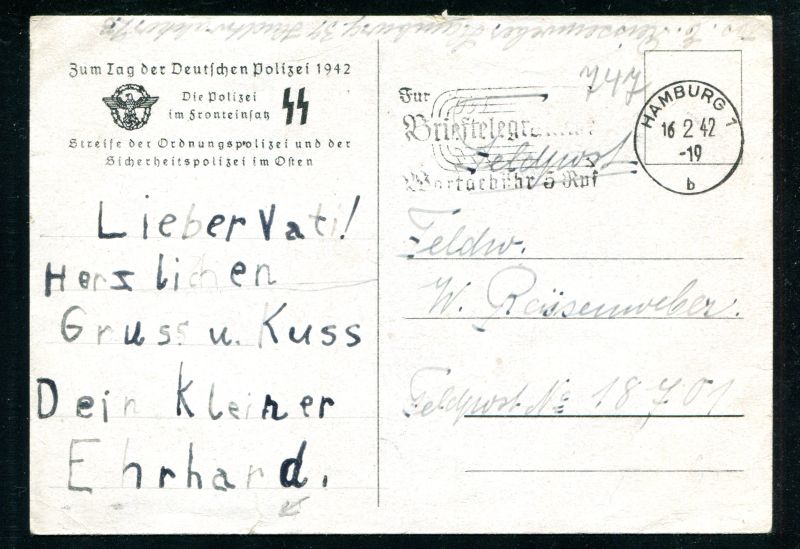 Hamburg 39
Zum Tag der Deutschen Polizei 1942
Die Polizei
im Fronteinsatz
Streife der Ordnungspolizei und der
Sicherheitspolizei im Osten
Lieber Vati!
Herzlichen
Gruss u. Kuss
Dein kleiner
Ehrhard.
747
Für
Brieftelegramme
Wortgebühr 5 Rpf
HAMBURG 1
16 2 42
-19
b
Feldpost
Feldw.
W. Reisenweber.
Feldpost No 18701